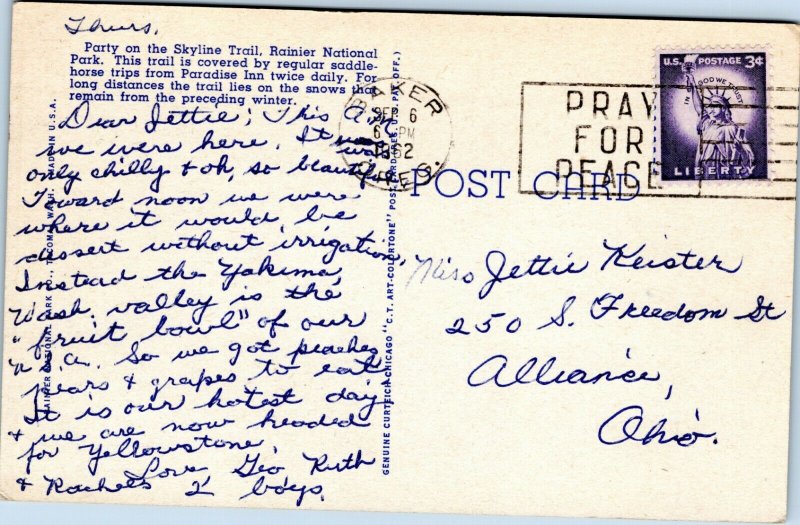 Thurs.
Party on the Skyline Trail, Rainier National
Park. This trail is covered by regular saddle-
horse trips from Paradise Inn twice daily. For
long distances the trail lies on the snows that
remain from the preceding winter.
Dear Jettie; This A.M.
we were here. It was
only chilly & oh, so beautiful
Toward noon we were
where it would be
dessert without irrigation,
Instead the Yakima,
Wash. valley is the
"fruit bowl" of our
U.S.A. So we got peaches
pears & grapes to eat
It is our hotest day
& we are now headed
for Yellowstone,
Love Geo Ruth
& Rachels 2 boys.
RAINIER NATIONAL PARK TACOMA, WASH. MADE IN U.S.A.
GENUINE CURTEICH-CHICAGO "C.T. ART-COLORTONE" POST CARD (REG. U.S. PAT. OFF.)
BAKER
SEP 6
6 PM
1962
OREG.
PRAY
FOR
PEACE
U.S. POSTAGE 3¢
IN GOD WE TRUST
LIBERTY
POST CARD
Miss Jettie Keister
250 S. Freedom St
Alliance,
Ohio.